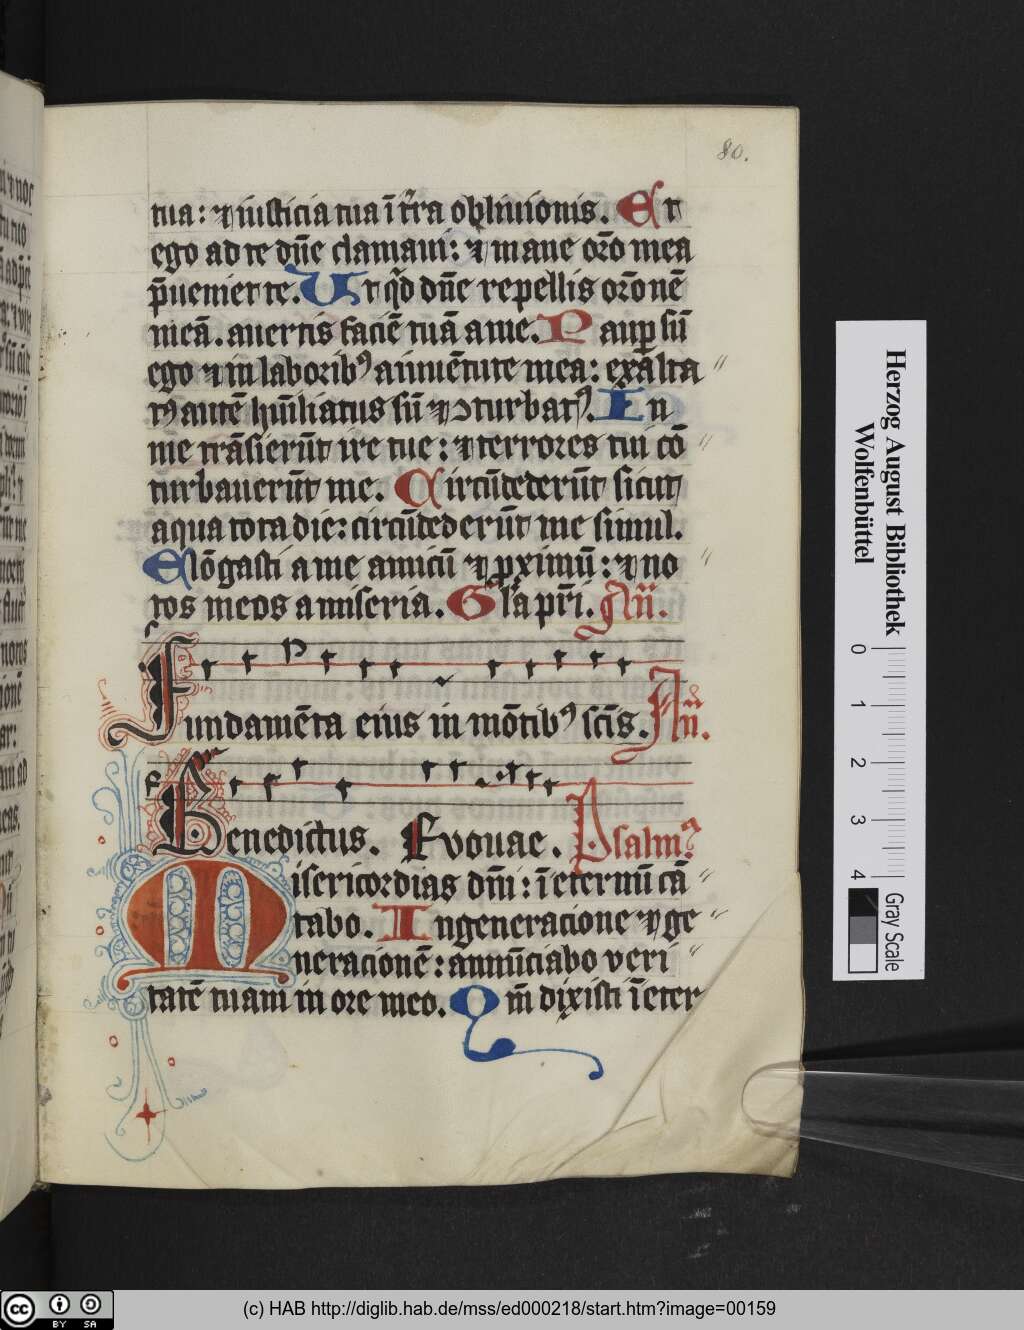 80.
tua: ⁊ iusticia tua ī t̄ra obliuionis. Et
ego ad te dn̄e clamaui: ⁊ mane orō mea
p̄ueniet te. Ut qͥd dn̄e repellis orōnē
meā. auertis faciē tuā a me. Paup̲ sū
ego ⁊ in laboribꝰ a iuuētute mea: exalta
tꝰ autē hūiliatus sū ⁊ ↄturbatꝰ. In
me trāsierūt ire tue: ⁊ terrores tui cō
turbauerūt me. Circūdederūt sicut
aqua tota die: circūdederūt me simul.
Elōgasti a me amicū ⁊ ꝓximū: ⁊ no
tos meos a miseria. Gl̄a pr̄i. An̄.
Fundamēta eius in mōtibꝰ sc̄is. An̄.
Benedictus. Evouae. Psalmꝰ
Misericordias dn̄i: ī eternū cā
tabo. In generacione ⁊ ge
neracionē: annūciabo veri
tatē tuam in ore meo. Qm̄ dixisti ī eter
Herzog August Bibliothek
Wolfenbüttel
0 1 2 3 4
Gray Scale
cc BY SA
(c) HAB http://diglib.hab.de/mss/ed000218/start.htm?image=00159